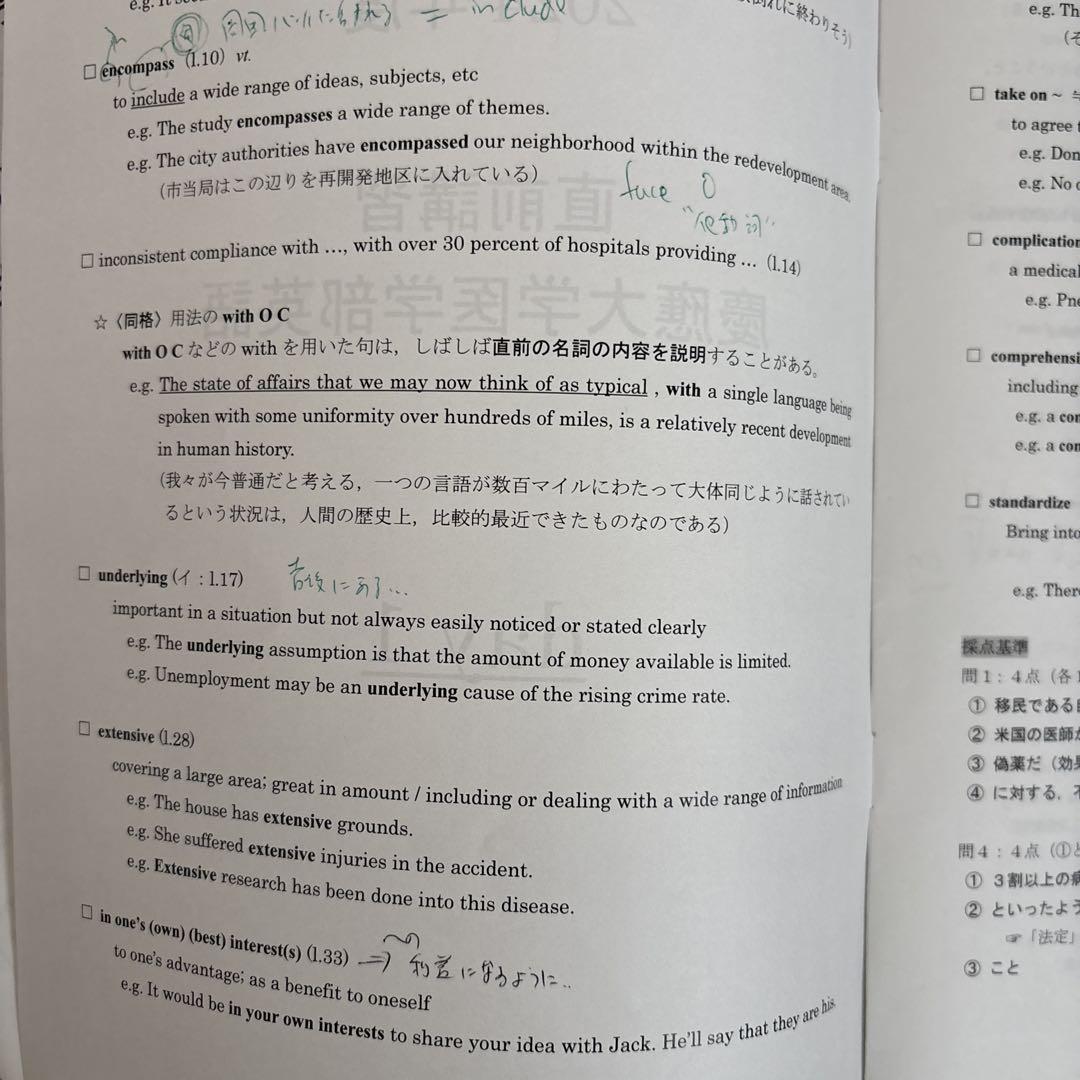 e.g.
に終わりそう)
= include
□ encompass (l.10) vt.
to include a wide range of ideas, subjects, etc
e.g. The study encompasses a wide range of themes.
e.g. The city authorities have encompassed our neighborhood within the redevelopment area.
(市当局はこの辺りを再開発地区に入れている)
face O
"他動詞"
□ inconsistent compliance with …, with over 30 percent of hospitals providing … (l.14)
☆〈同格〉用法の with O C
with O C などの with を用いた句は，しばしば直前の名詞の内容を説明することがある。
e.g. The state of affairs that we may now think of as typical , with a single language being
spoken with some uniformity over hundreds of miles, is a relatively recent development
in human history.
(我々が今普通だと考える，一つの言語が数百マイルにわたって大体同じように話されてい
るという状況は，人間の歴史上，比較的最近できたものなのである)
□ underlying (イ : l.17) 背後にある…
important in a situation but not always easily noticed or stated clearly
e.g. The underlying assumption is that the amount of money available is limited.
e.g. Unemployment may be an underlying cause of the rising crime rate.
□ extensive (l.28)
covering a large area; great in amount / including or dealing with a wide range of information
e.g. The house has extensive grounds.
e.g. She suffered extensive injuries in the accident.
e.g. Extensive research has been done into this disease.
□ in one's (own) (best) interest(s) (l.33) ⇒ 〜の利益になるように..
to one's advantage; as a benefit to oneself
e.g. It would be in your own interests to share your idea with Jack. He'll say that they are his.
e.g. Th
(そ
□ take on ~ ≒
to agree t
e.g. Don
e.g. No
□ complication
a medical
e.g. Pne
□ comprehensi
including
e.g. a con
e.g. a con
□ standardize
Bring into
e.g. There
採点基準
問1：4点（各1
① 移民である
② 米国の医師が
③ 偽薬だ（効果
④ に対する，不
問4：4点（①と
① 3割以上の病
② といったよう
☞「法定」
③ こと